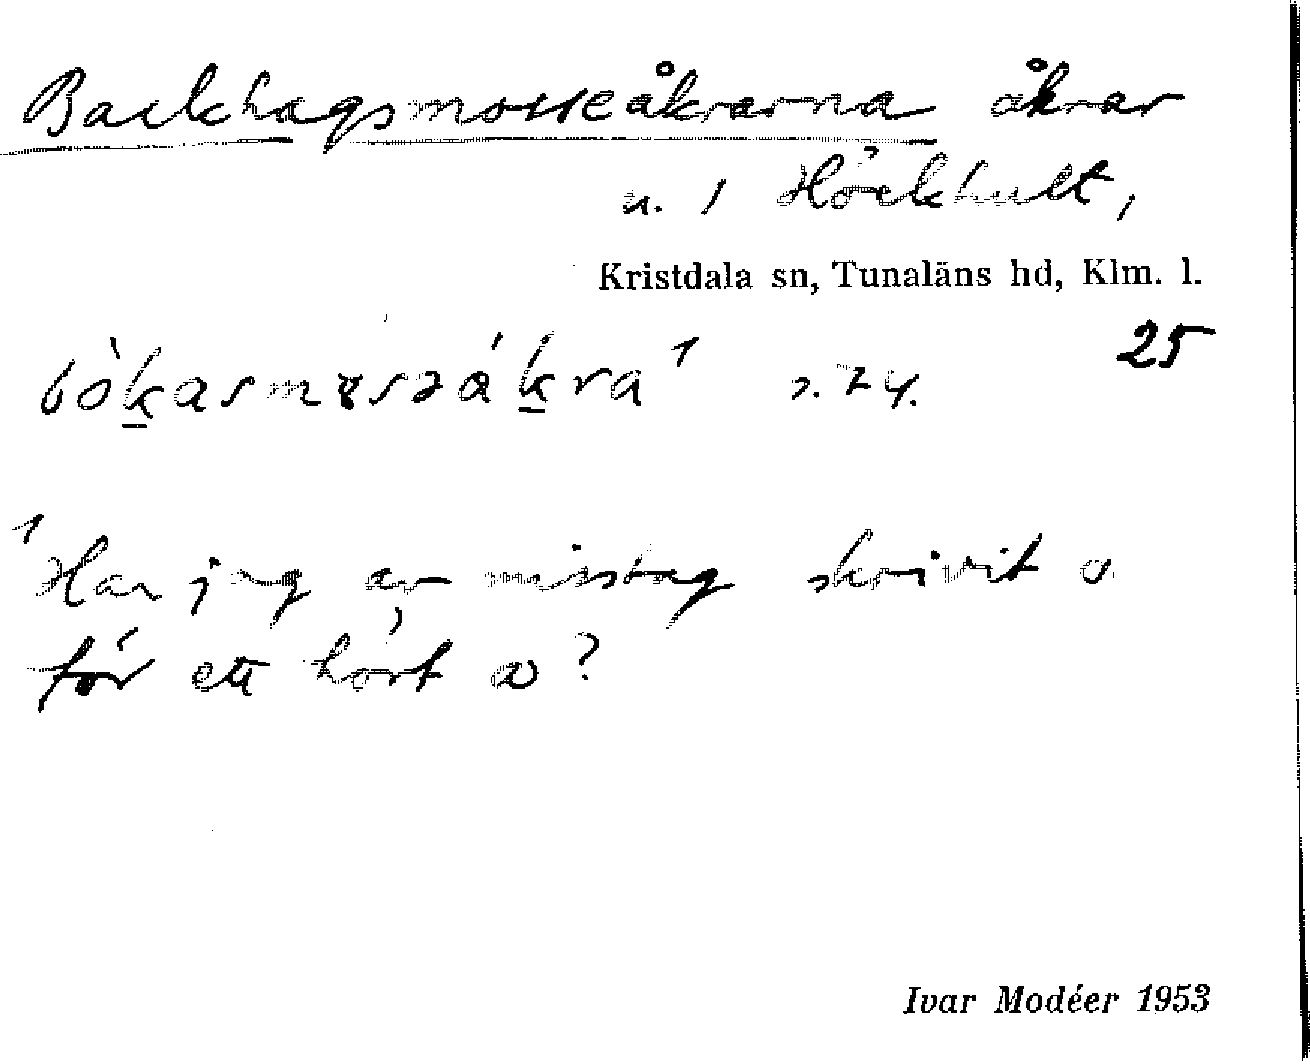 Backhagsmosseåkrarna åkrar
u. 1 Höckhult,
Kristdala sn, Tunaläns hd, Klm. l.
25
s. 24.
¹Har jag av misstag skrivit o
för ett hört ɷ?
Ivar Modéer 1953